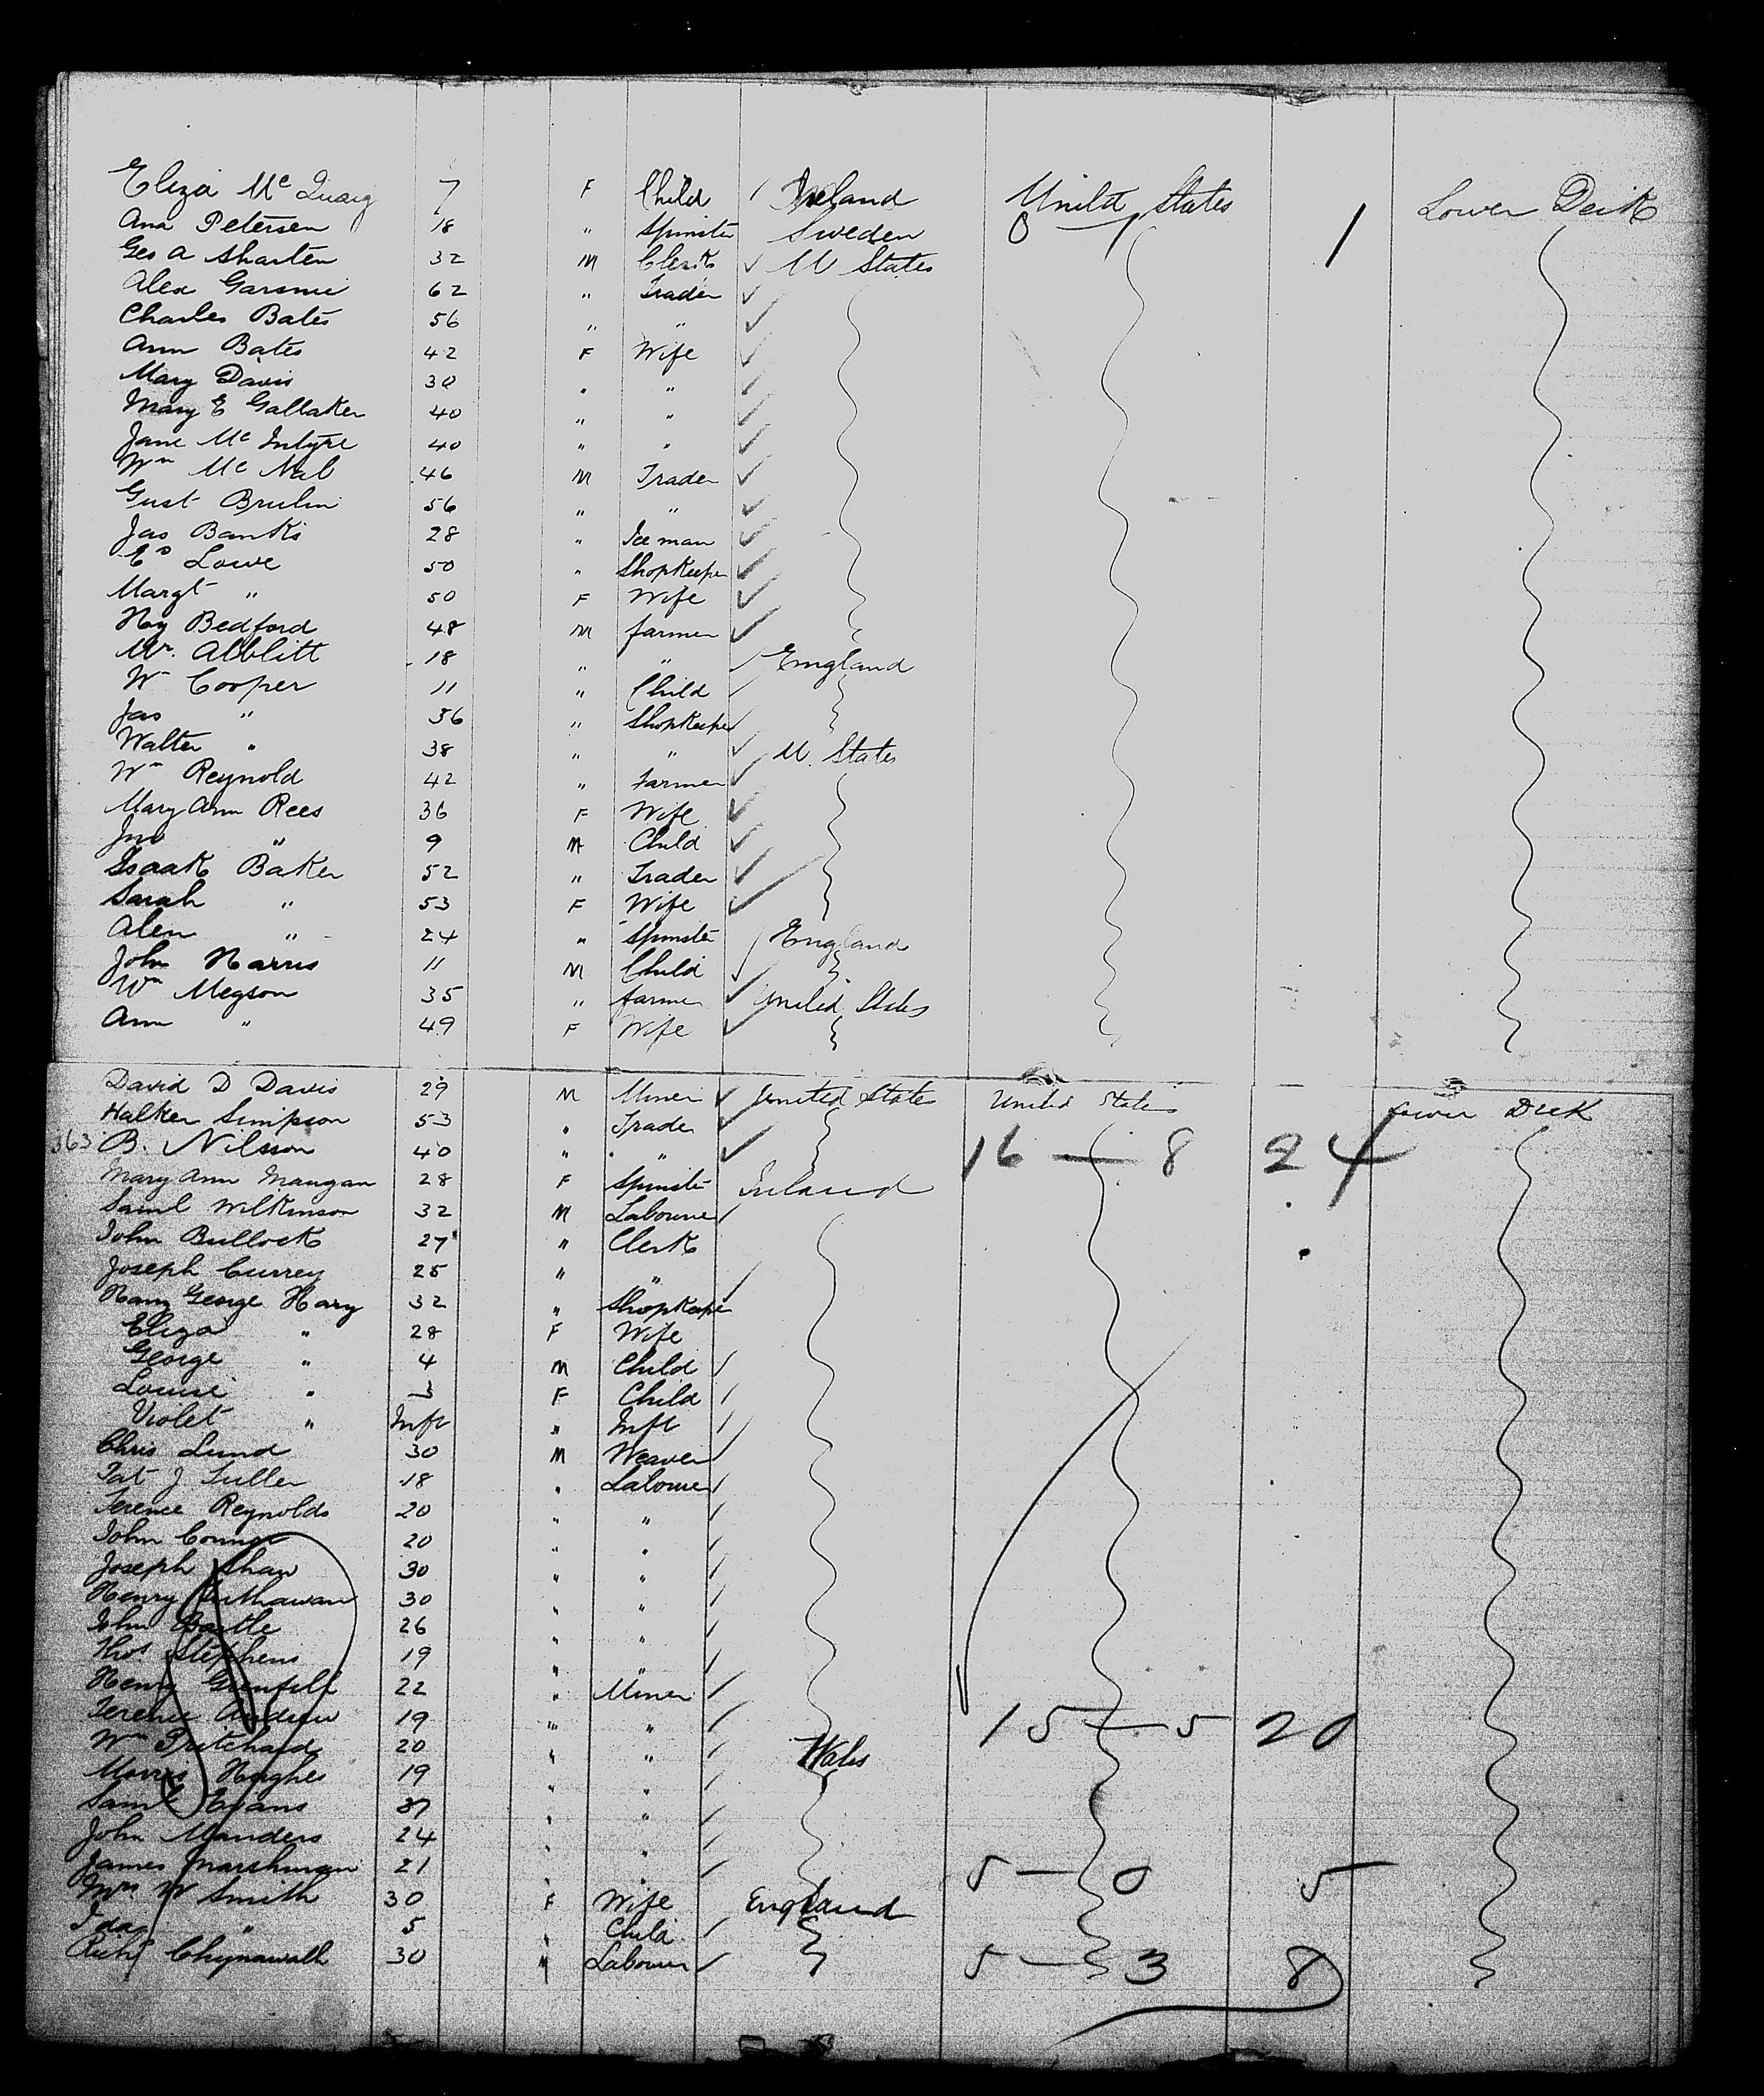 Eliza Mc Quaig 7 F Child Ireland United States Lower Deck
Ana Petersen 18 " Spinster Sweden 0 — 1 1
Geo A Sharten 32 M Clerk U States
Alex 62 " Trader
Charles Bates 56 " "
Ann Bates 42 F Wife
Mary Davis 30 " "
Mary E Gallaker 40 " "
Jane Mc Intyre 40 " "
Wm Mc Nab 46 M Trader
Gust Brulin 56 " "
Jas Banks 28 " Ice man
Ed Lowe 50 " Shopkeeper
Margt " 50 F Wife
Hy Bedford 48 M farmer
Wm. Abblitt 18 " " England
Wm Cooper 11 " Child
Jas " 36 " Shopkeeper
Walter " 38 " " U. States
Wm Reynold 42 " Farmer
Mary Ann Rees 36 F Wife
Jno " 9 M Child
Isaak Baker 52 " Trader
Sarah " 53 F Wife
Alen " 24 " Spinster England
John Harris 11 M Child
Wm Megson 35 " farmer United States
Ann " 49 F Wife
David D Davis 29 M Miner United States United States Lower Deck
Walker Simpson 53 " Trader
363 B. Nilsson 40 " " 16 — 8 24
Mary Ann Mangan 28 F Spinster Ireland
Saml Wilkinson 32 M Labourer
John Bullock 27 " Clerk
Joseph Currey 25 " "
Harry George Hary 32 " Shopkeeper
Eliza " 28 F Wife
George " 4 M Child
Louise " 3 F Child
Violet " Inft " Inft
Chris Lund 30 M Weaver
Pat J Fuller 18 " Labourer
Terence Reynolds 20 " "
John Connor 20 " "
Joseph Shaw 30 " "
Henry 30 " "
John Bartle 26 " "
Thos Stephens 19 " "
Henry Grenfell 22 " Miner
Terence Andrew 19 " " 15 — 5 20
Wm Pritchard 20 " " Wales
Morris Hughes 19 " "
Saml Evans 37 " "
John Manders 24 " "
James Marshman 21 " " 5 — 0 5
Mrs W Smith 30 F Wife England
Ida " 5 " Child
Richd Chynowalh 30 M Labourer 5 — 3 8